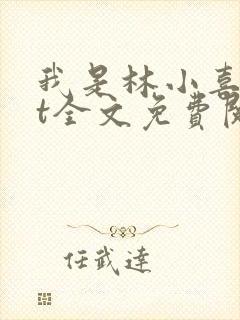 我是林小喜
t全文免費閱
任武達